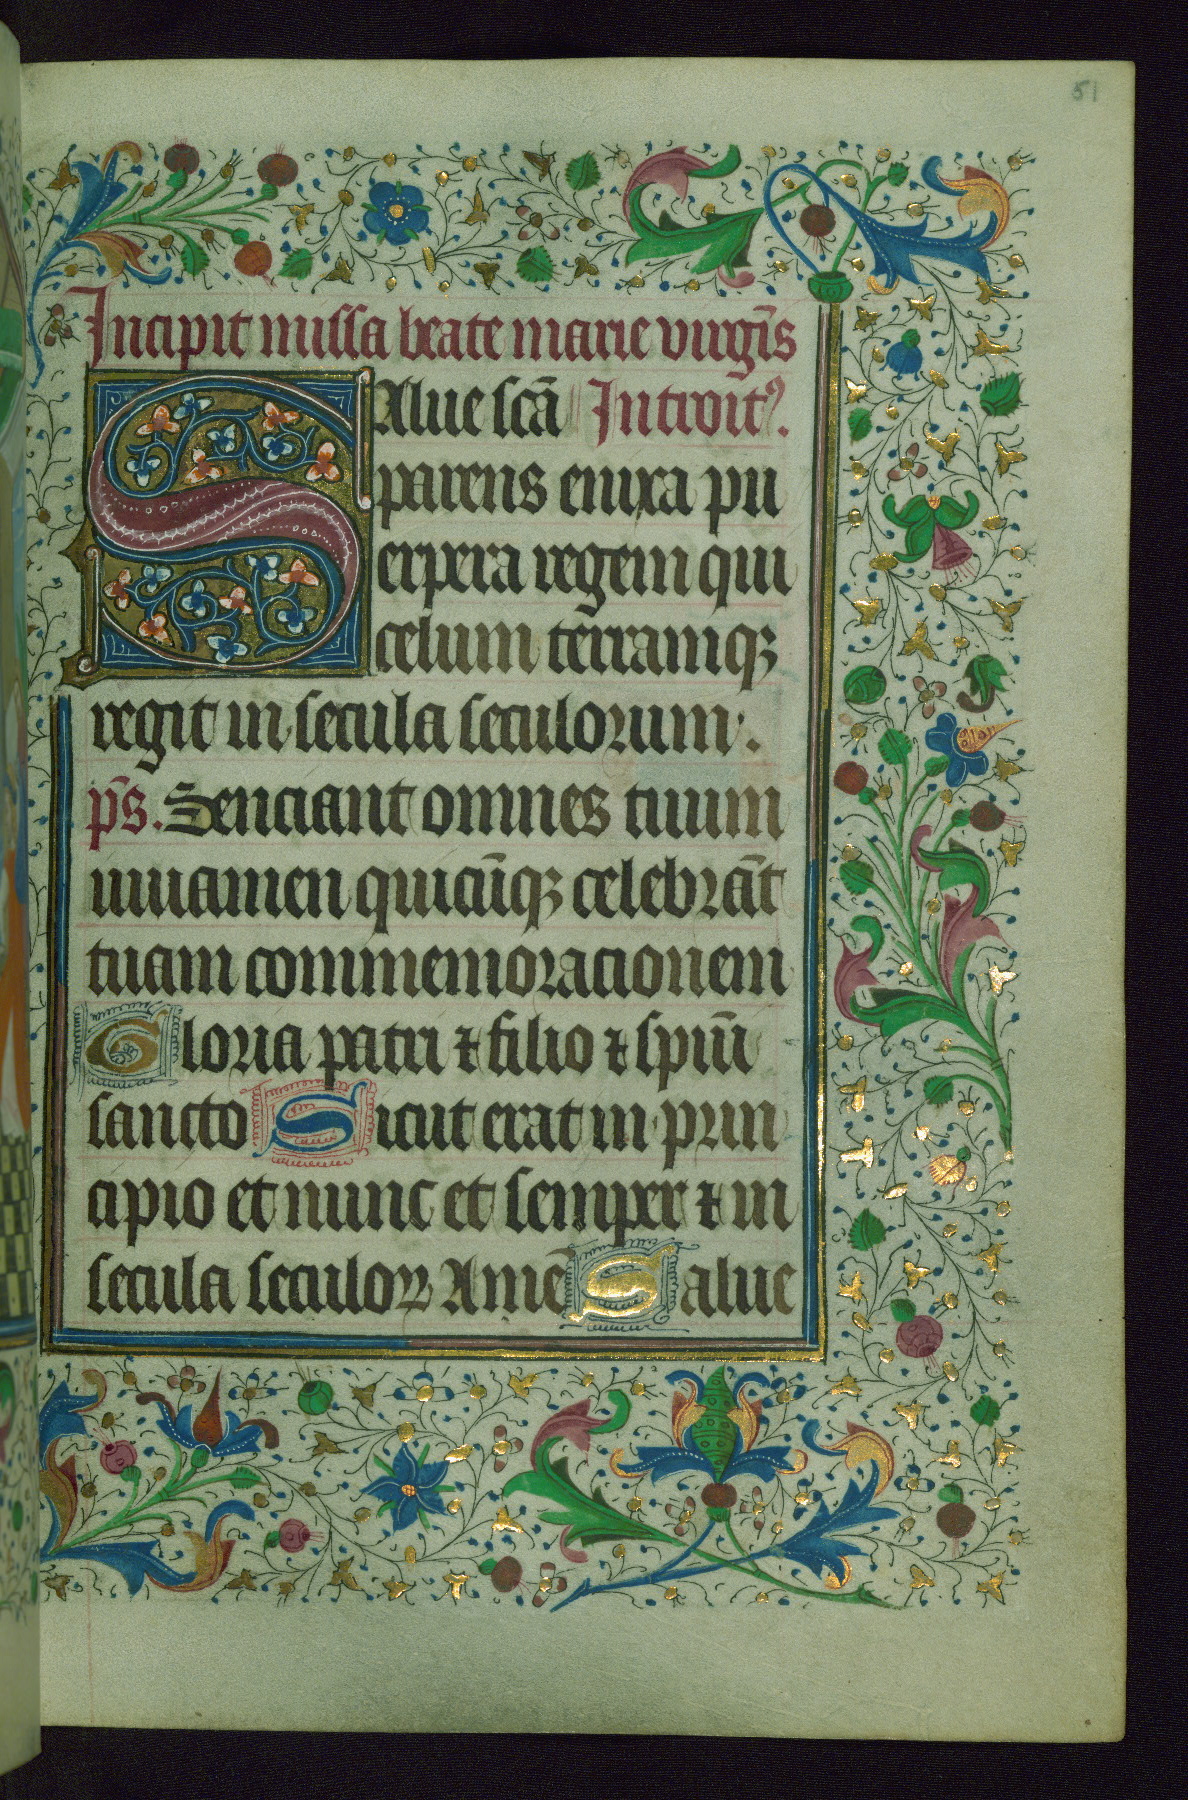 51
Incipit missa beate marie virgīs
Salue scā Introit⁹.
parens enixa pu
erpera regem qui
celum terramqꝫ
regit in secula seculorum :
p̄s. Senciant omnes tuum
iuuamen quicūqꝫ celebrāt
tuam commemoracionem
Gloria patri ⁊ filio ⁊ spiūi
sancto Sicut erat in prin
cipio et nunc et semper ⁊ in
secula seculoꝝ Amē Salue